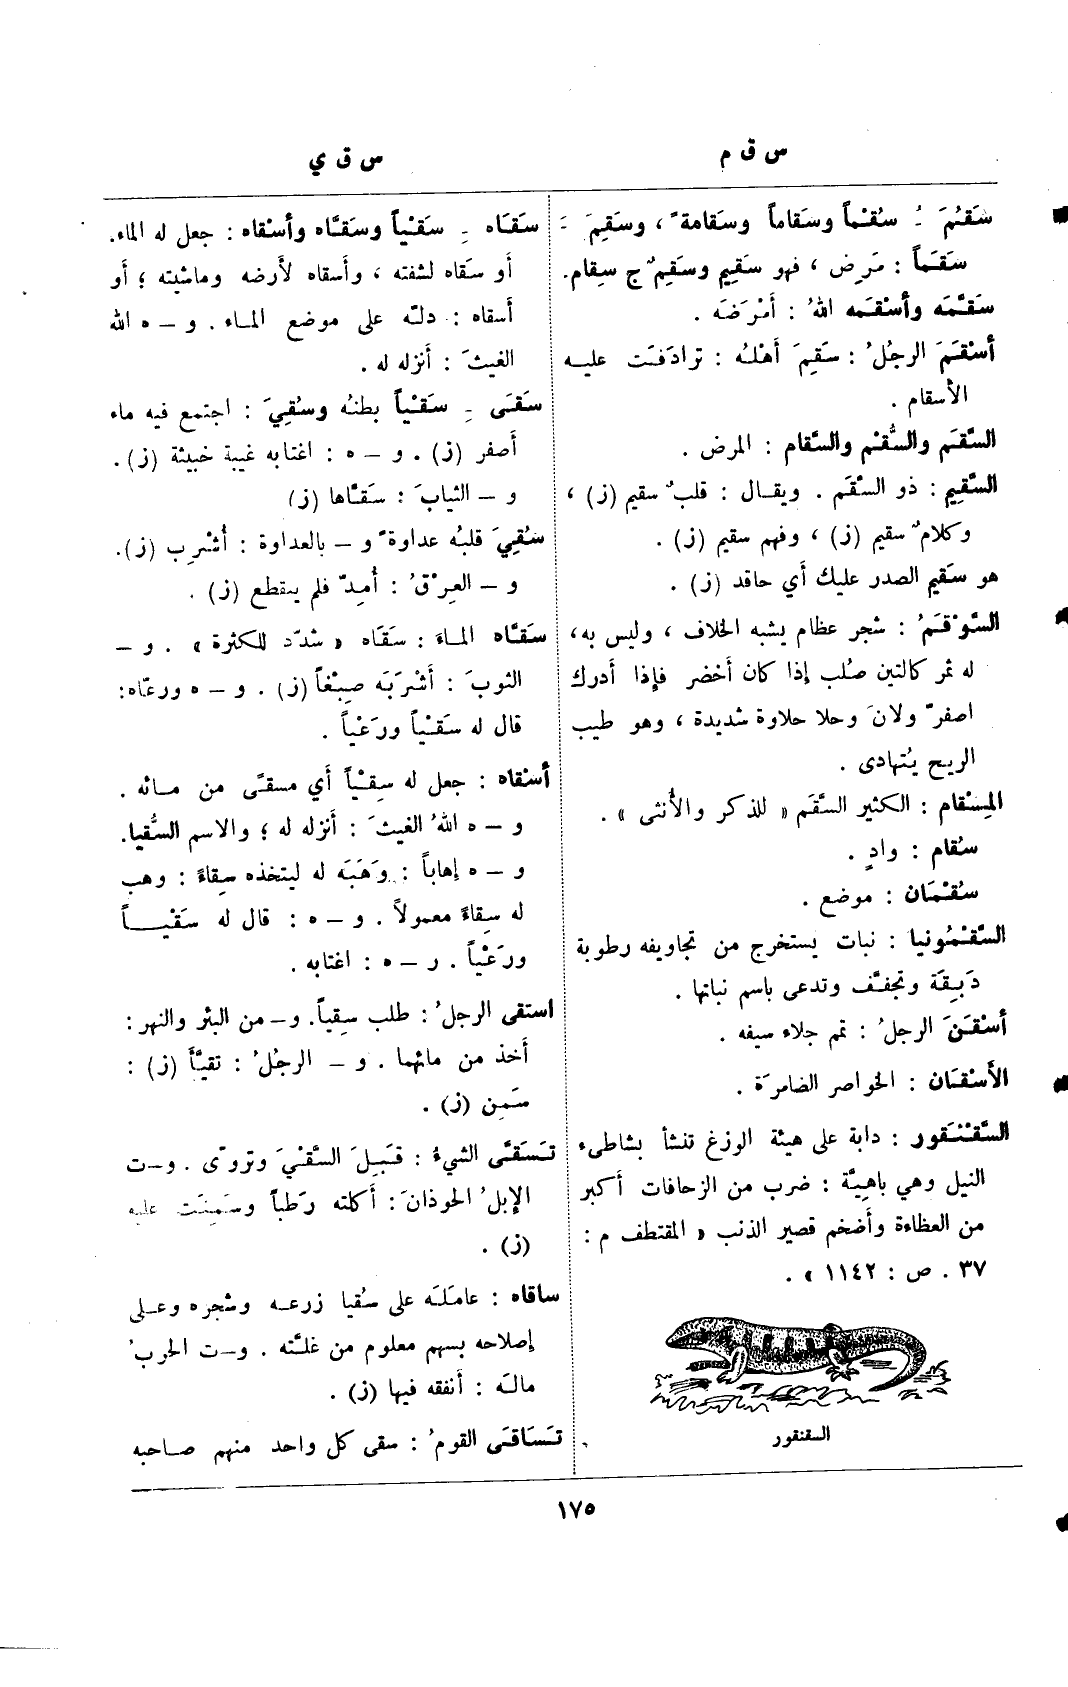 س ق م
س ق ي
سَقُمَ ـُ سُقْماً وسَقاماً وسَقامةً ، وسَقِمَ ـَ
سَقَماً : مَرِض ، فهو سَقِيم وسَقِمٌ ج سِقام.
سَقَّمَه وأسْقَمه اللهُ : أمْرَضَه .
أسْقَمَ الرجُلُ : سَقِمَ أهْلُه : ترادَفَت عليه
الأسقام .
السَّقَم والسُّقْم والسَّقام : المرض .
السَّقِيم : ذو السَّقَم . ويقال : قلبٌ سقيم (ز) ،
وكلامٌ سقيم (ز) ، وفهم سقيم (ز) .
هو سَقيم الصدر عليك أي حاقد (ز) .
السَّوْقَمُ : شجر عظام يشبه الخلاف ، وليس به،
له ثمر كالتين صُلب إذا كان أخضر فإذا أدرك
اصفرّ ولانَ وحلا حلاوة شديدة ، وهو طيب
الريح يُتهادى .
المِسْقام : الكثير السَّقَم « للذكر والأنثى » .
سُقام : وادٍ .
سُقْمَان : موضع .
السَّقْمُونيا : نبات يستخرج من تجاويفه رطوبة
دَبِقَة وتجفّف وتدعى باسم نباتها .
أسْقَنَ الرجلُ : تمم جلاء سيفه .
الأسْقَان : الخواصر الضامرَة .
السَّقَنْقور : دابة على هيئة الوزغ تنشأ بشاطىء
النيل وهي باهِيَّة : ضرب من الزحافات أكبر
من العظاءة وأضخم قصير الذنب « المقتطف م :
٣٧ . ص : ١١٤٢ » .
السقنقور
سَقَاه ـِ سَقْياً وسَقَّاه وأسْقاه : جعل له الماء.
أو سَقاه لشفته ، وأسقاه لأرضه وماشيته ؛ أو
أسقاه : دلّه على موضع الماء . و – ه الله
الغيثَ : أنزله له .
سَقَى ـِ سَقْياً بطنُه وسُقِيَ : اجتمع فيه ماء
أصفر (ز) . و – ه : اغتابه غيبة خبيثة (ز) .
و – الثيابَ : سَقّاها (ز)
سُقِيَ قلبُه عداوةً و – بالعداوة : أُشْرِب (ز).
و – العِرْقُ : أُمِدّ فلم ينقطع (ز) .
سَقَّاه الماءَ : سَقَاه « شدّد للكثرة » . و –
الثوبَ : أشْرَبَه صِبْغاً (ز) . و – ه ورعّاه:
قال له سَقْياً ورَعْياً .
أسْقاه : جعل له سِقْياً أي مسقًى من مائه .
و – ه اللهُ الغيثَ : أنزله له ؛ والاسم السُّقيا.
و – ه إهاباً : وَهَبَه له ليتخذه سِقاءً : وهب
له سِقاءً معمولاً . و – ه : قال له سَقْيــاً
ورَعْياً . ر – ه : اغتابه .
استقى الرجلُ : طلب سِقياً. و– من البئر والنهر :
أخذ من مائهما . و – الرجُلُ : تقيَّأَ (ز) :
سَمِن (ز) .
تَسَقَّى الشيءُ : قَبِلَ السَّقْيَ وتروّى . و–ت
الإبلُ الحوذانَ : أكلته رَطباً وسَمِنَت عليه
(ز) .
ساقاه : عامَلَه على سُقيا زرعه وشجره وعلى
إصلاحه بسهم معلوم من غلّته . و–ت الحربُ
مالَه : أنفقه فيها (ز) .
تَسَاقَى القومُ : سقى كل واحد منهم صاحبه
١٧٥